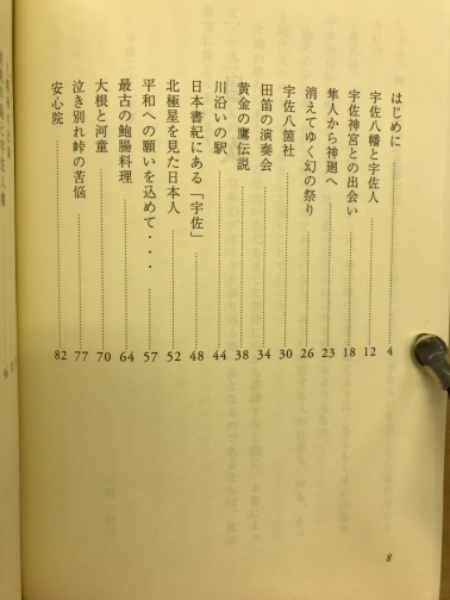 はじめに 4
宇佐八幡と宇佐人 12
宇佐神宮との出会い 18
隼人から神廻へ 23
消えてゆく幻の祭り 26
宇佐八箇社 30
田笛の演奏会 34
黄金の鷹伝説 38
川沿いの駅 44
日本書紀にある「宇佐」 48
北極星を見た日本人 52
平和への願いを込めて・・・ 57
最古の鮑腸料理 64
大根と河童 70
泣き別れ峠の苦悩 77
安心院 82
8